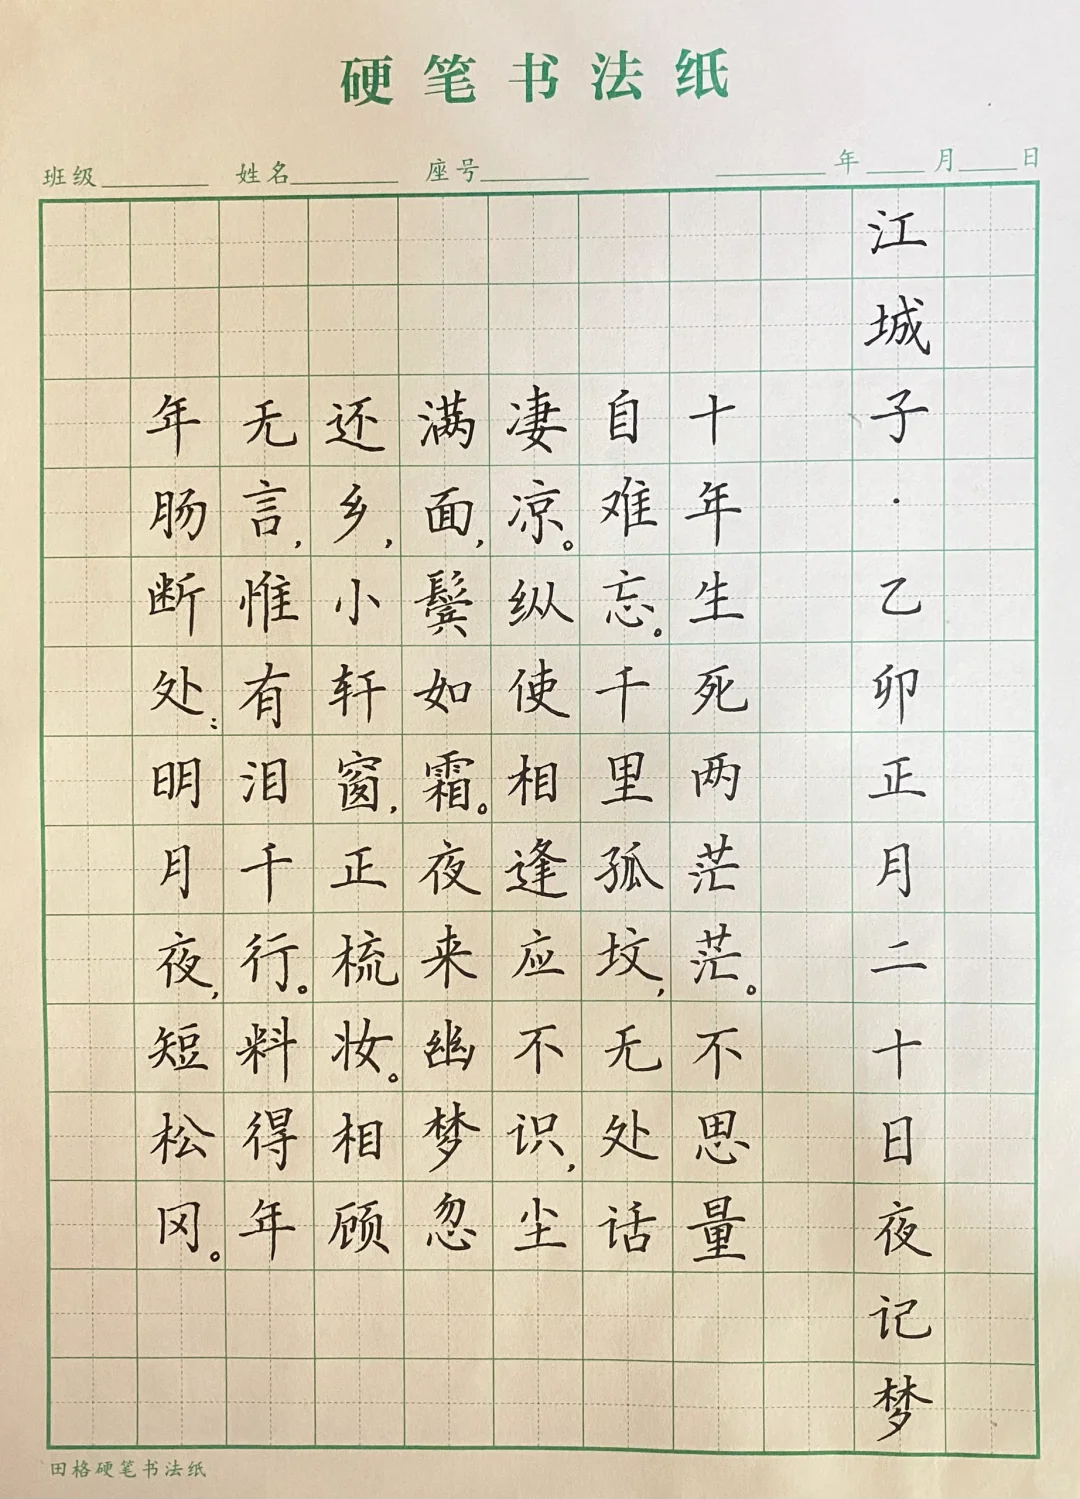 硬笔书法纸
班级 姓名 座号 年 月 日
江城子·乙卯正月二十日夜记梦
十年生死两茫茫。不思量
自难忘。千里孤坟,无处话
凄凉。纵使相逢应不识,尘
满面,鬓如霜。夜来幽梦忽
还乡,小轩窗,正梳妆。相顾
无言,惟有泪千行。料得年
年肠断处:明月夜,短松冈。
田格硬笔书法纸